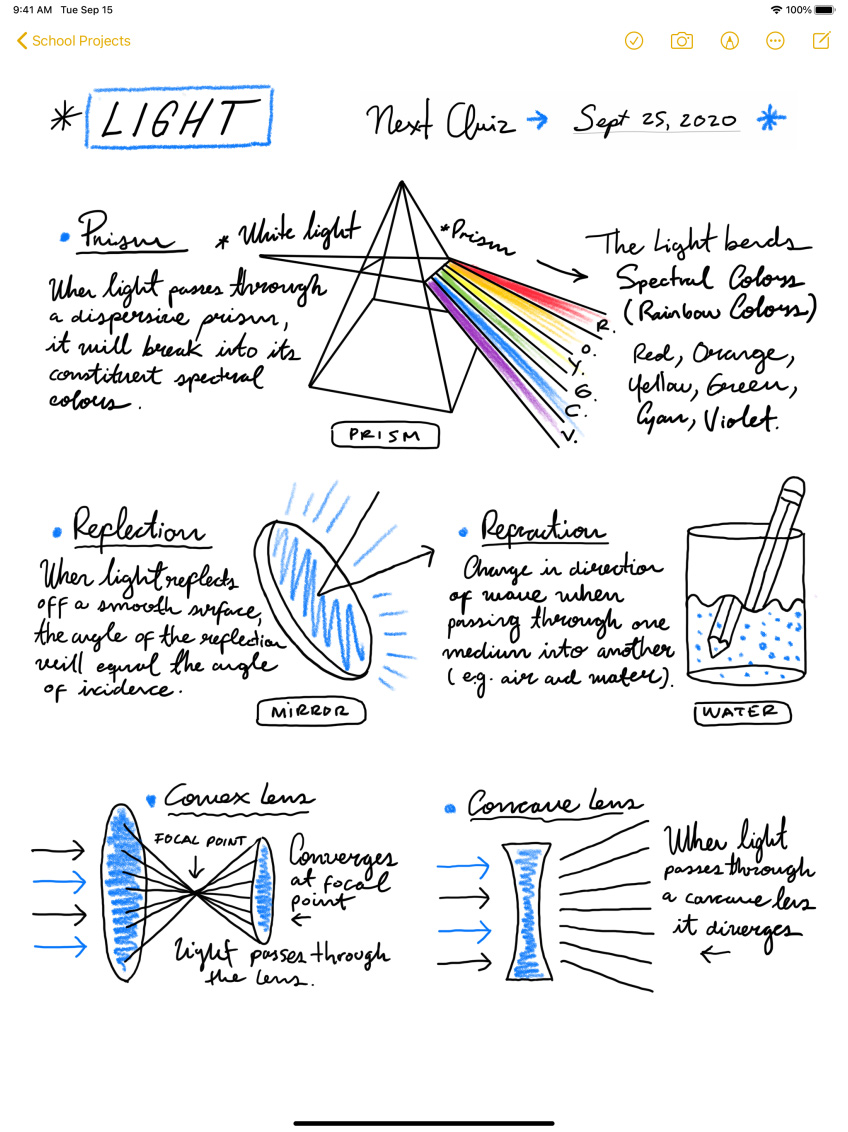 9:41 AM Tue Sep 15
100%
School Projects
* LIGHT
Next Quiz → Sept 25, 2020 *
• Prism
When light passes through
a dispersive prism,
it will break into its
constituent spectral
colours.
* White light
*Prism
The Light bends
Spectral Colors
(Rainbow Colours)
Red, Orange,
Yellow, Green,
Cyan, Violet.
R.
O.
Y.
G.
C.
V.
PRISM
• Reflection
When light reflects
off a smooth surface,
the angle of the reflection
will equal the angle
of incidence.
MIRROR
• Refraction
Change in direction
of wave when
passing through one
medium into another
(e.g. air and water).
WATER
• Convex Lens
FOCAL POINT
Converges
at focal
point
←
Light passes through
the lens.
• Concave Lens
When light
passes through
a concave lens
it diverges
←